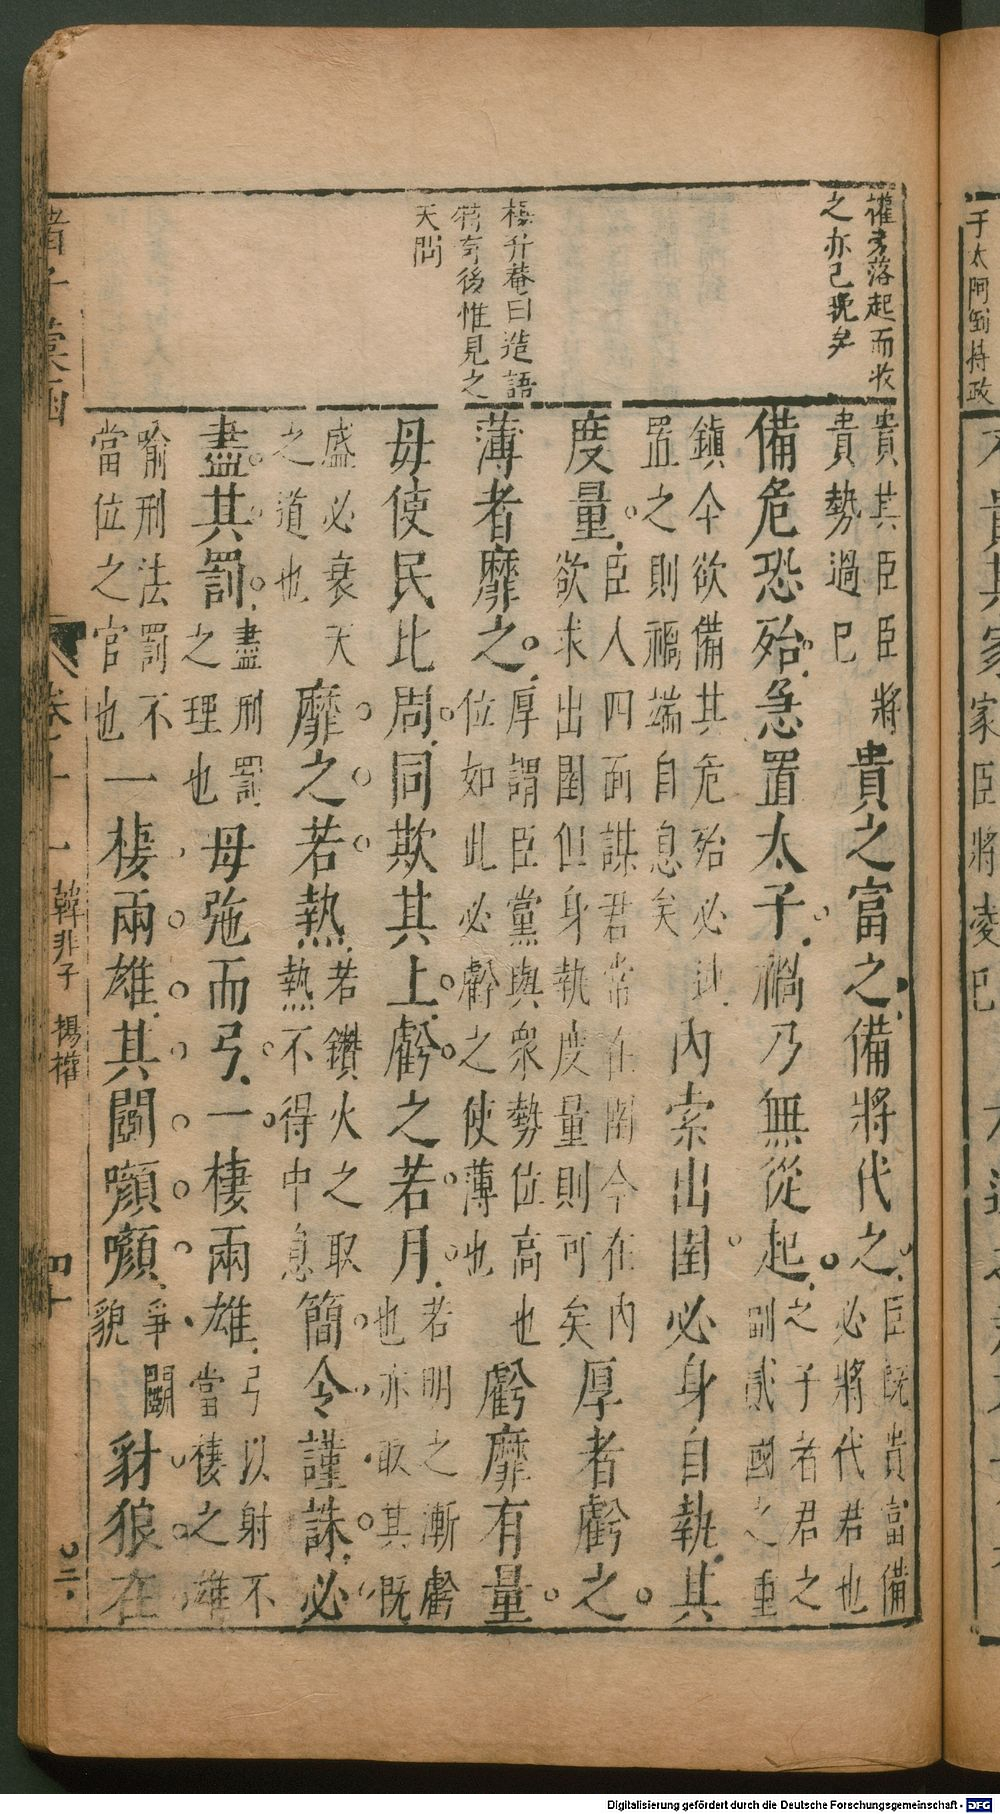 于太阿倒持政
家臣將凌已
權方落起而收
之亦已晚矣
楊升菴曰造語
特奇後惟見之
天問
貴其臣臣將
貴勢過已
貴之富之備將代之
臣既貴富備
必將代君也
備危恐殆急置太子禍乃無從起
之子者君之
副貳國之重
鎮今欲備其危殆必速
置之則禍端自息矣
內索出圉必身自執其
度量
臣人四面謀君常在閫今在內
欲求出圉但身執度量則可矣
厚者虧之
薄者靡之
厚謂臣黨與眾勢位高也
位如此必虧之使薄也
虧靡有量
毋使民比周同欺其上虧之若月
若明之漸虧
也亦取其既
盛必衰天
之道也
靡之若熱
若鑽火之取
熱不得中息
簡令謹誅必
盡其罰
盡刑罰
之理也
毋弛而弓一棲兩雄
弓以射不
當棲之雄
喻刑法罰不
當位之官也
一棲兩雄其鬭㘖㘖
爭鬭
貌
豺狼在
諸子彙函 卷十一 韓非子 揚權 四十
Digitalisierung gefördert durch die Deutsche Forschungsgemeinschaft - DFG